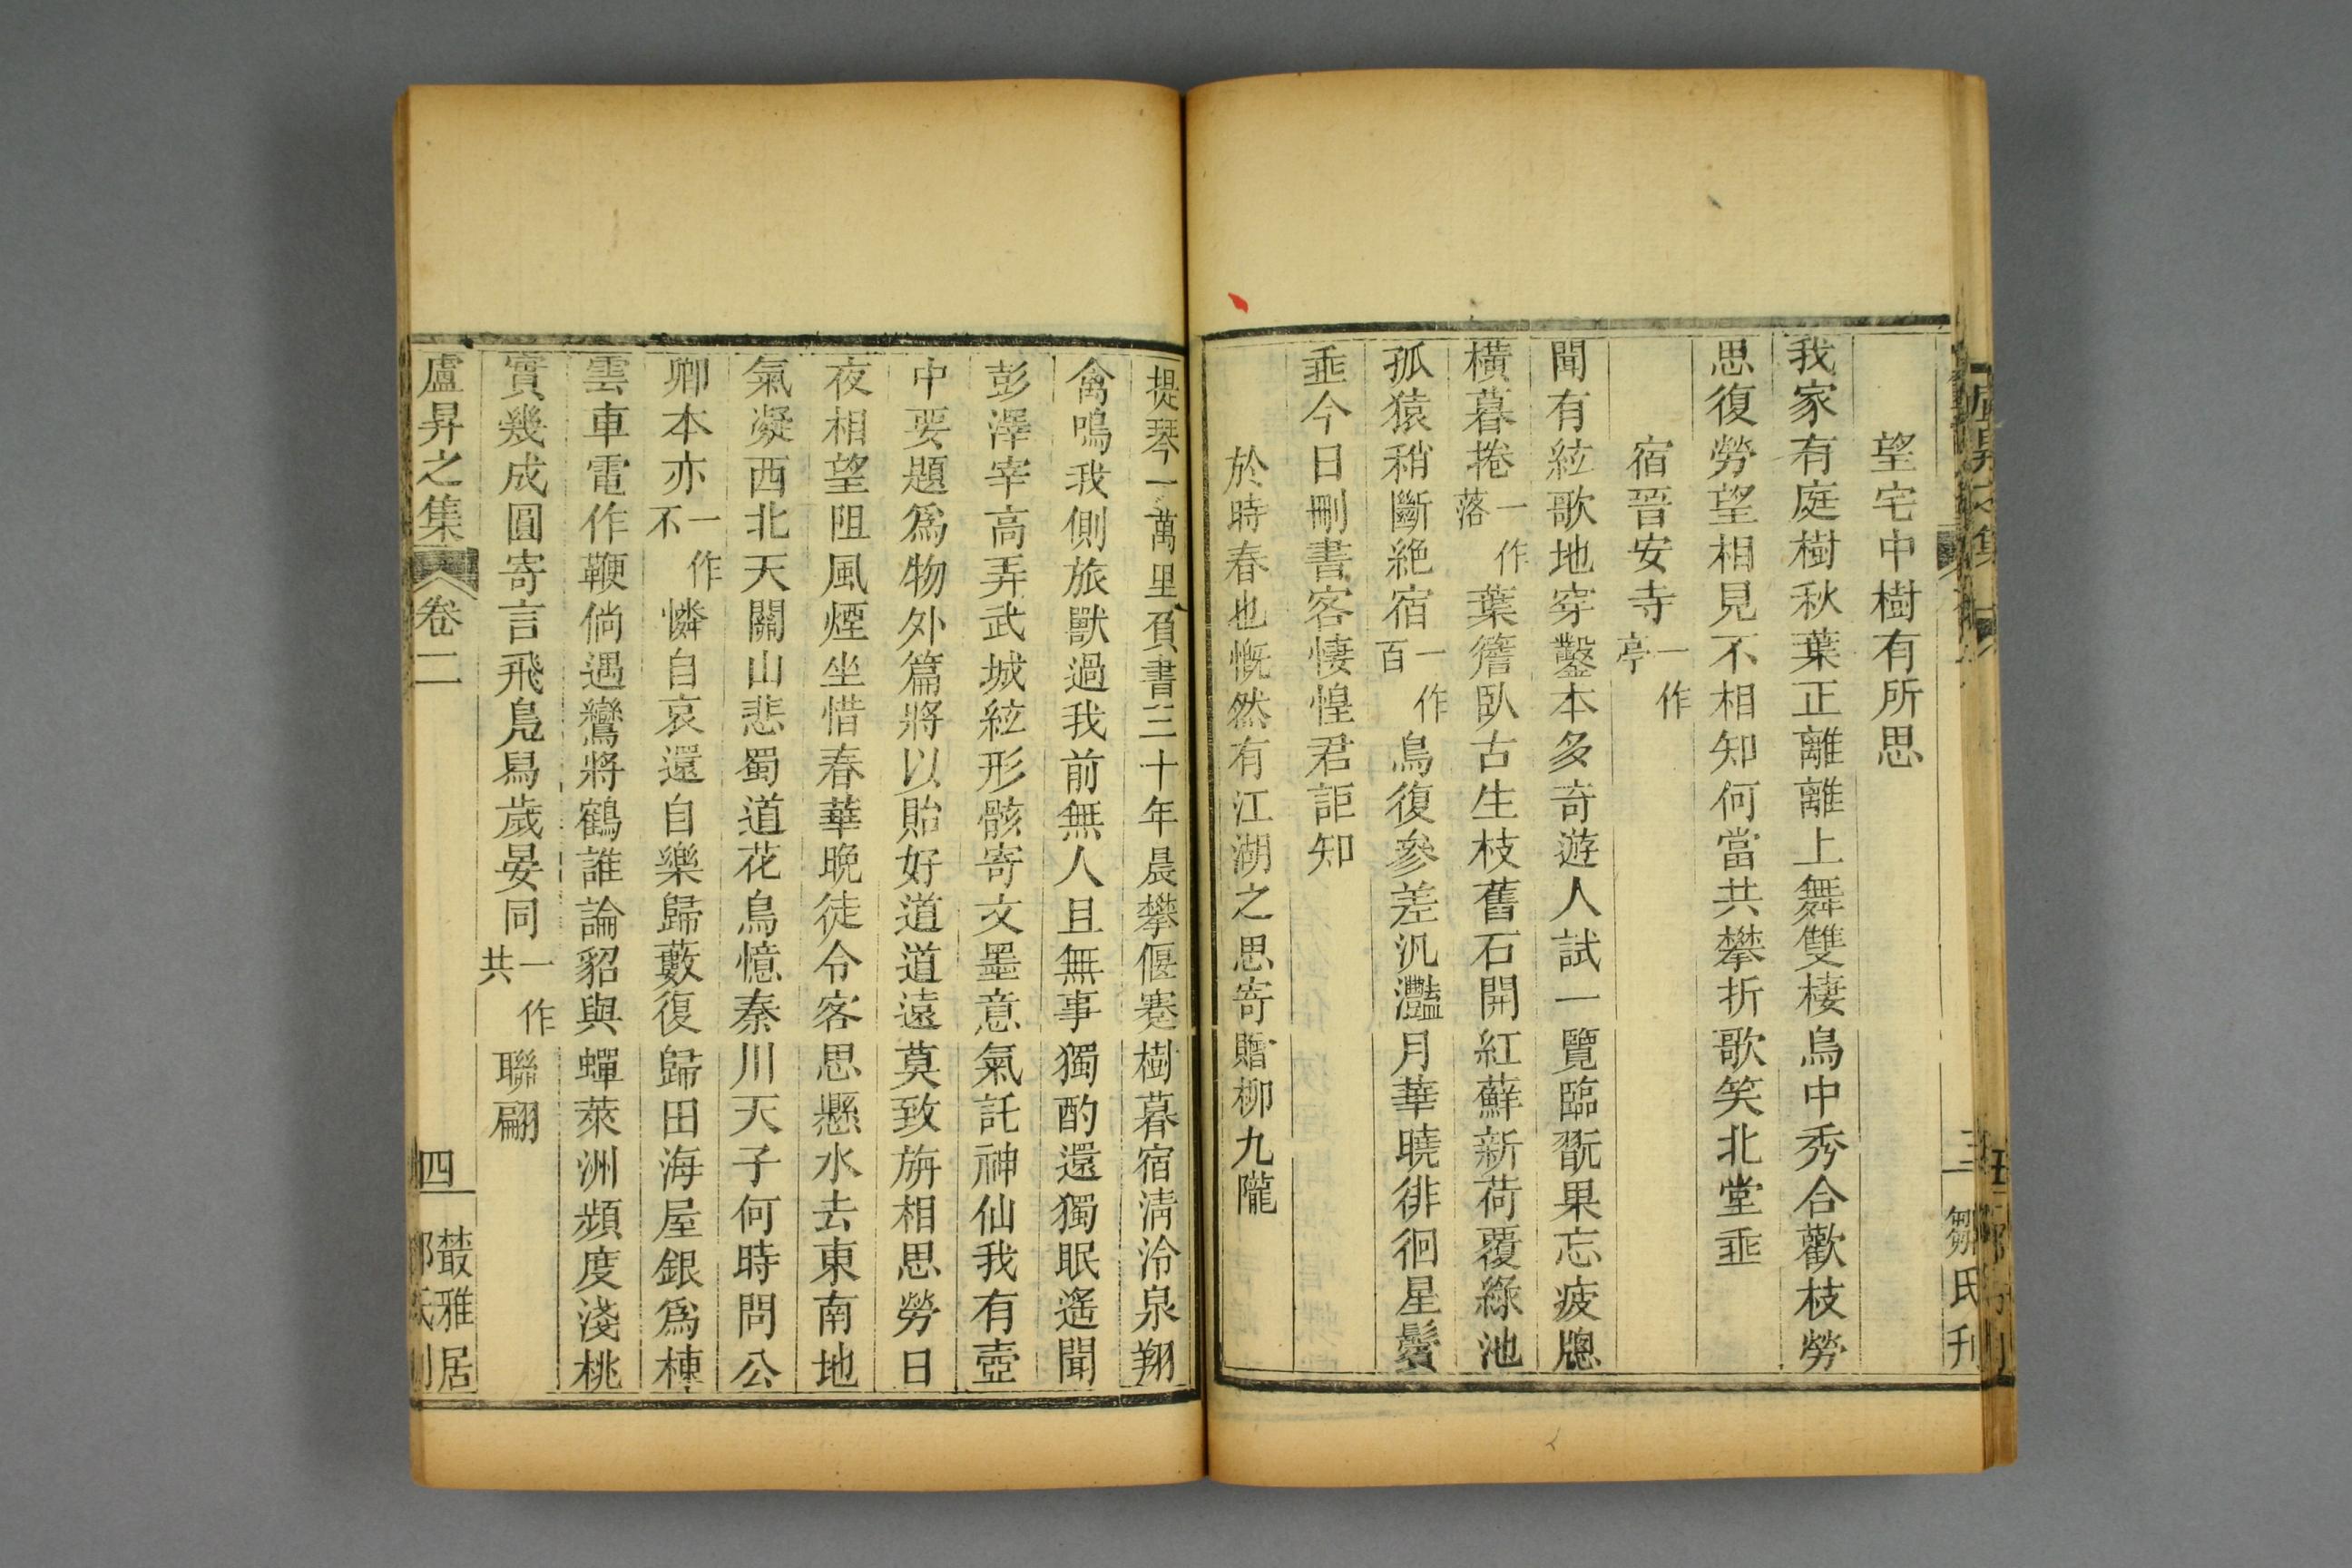 望宅中樹有所思
我家有庭樹秋葉正離離上舞雙棲鳥中秀合歡枝勞
思復勞望相見不相知何當共攀折歌笑北堂垂
宿晉安寺一作亭
聞有絃歌地穿鑿本多奇遊人試一覽臨翫果忘疲牕
橫暮捲一作落葉簷臥古生枝舊石開紅蘚新荷覆綠池
孤猿稍斷絕宿一作百鳥復參差汎灩月華曉徘徊星鬢
垂今日刪書客悽惶君詎知
於時春也慨然有江湖之思寄贈柳九隴
三 鄒氏刋
提琴一萬里負書三十年晨攀偃蹇樹暮宿淸泠泉翔
禽鳴我側旅獸過我前無人且無事獨酌還獨眠遙聞
彭澤宰高弄武城絃形骸寄文墨意氣託神仙我有壺
中要題爲物外篇將以貽好道道遠莫致旃相思勞日
夜相望阻風煙坐惜春華晚徒令客思懸水去東南地
氣凝西北天關山悲蜀道花鳥憶秦川天子何時問公
卿本亦一作不憐自哀還自樂歸藪復歸田海屋銀爲棟
雲車電作鞭倘遇鸞將鶴誰論貂與蟬萊洲頻度淺桃
實幾成圓寄言飛鳧舄歲晏同一作共聯翩
盧昇之集 卷二 四 叢雅居